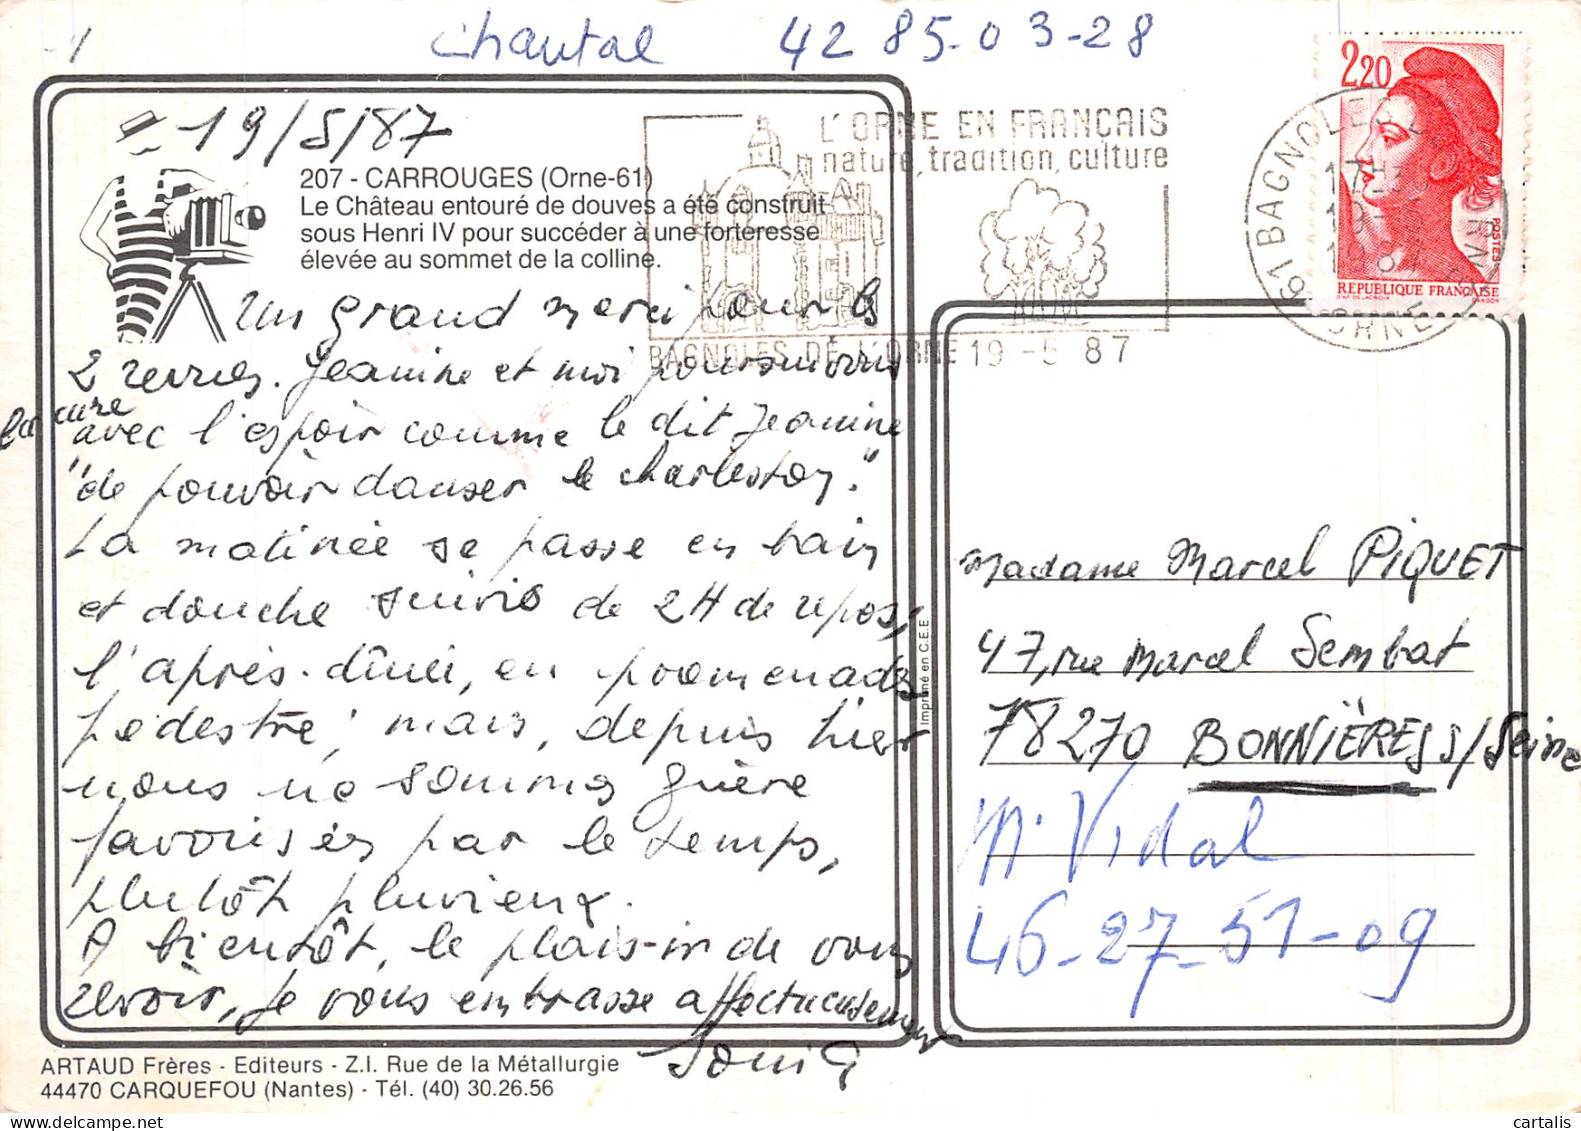 Chantal 42 85-03-28
19/5/87
207 - CARROUGES (Orne-61)
Le Château entouré de douves a été construit
sous Henri IV pour succéder à une forteresse
élevée au sommet de la colline.
Un grand merci pour les
2 revues. Jeanine et moi poursuivons
la cure
avec l'espoir comme le dit Jeanine
"de pouvoir danser le charleston."
La matinée se passe en bain
et douche suivis de 2H de repos,
l'après-dîner, en promenades
pédestre; mais, depuis hier
nous ne sommes guère
favorisés par le temps,
plutôt pluvieux.
A bientôt, le plaisir de vous
revoir, je vous embrasse affectueusement
Sonia
ARTAUD Frères - Editeurs - Z.I. Rue de la Métallurgie
44470 CARQUEFOU (Nantes) - Tél. (40) 30.26.56
Imprimé en C.E.E
L'ORNE EN FRANCAIS
nature, tradition, culture
BAGNOLES DE L'ORNE 19 -5 87
61 BAGNOLES DE L'ORNE
ORNE
2,20
POSTES
REPUBLIQUE FRANÇAISE
Madame Marcel PIQUET
47, rue Marcel Sembat
78270 BONNIÈRES S/Seine
M. Vidal
46-27-51-09
cartalis